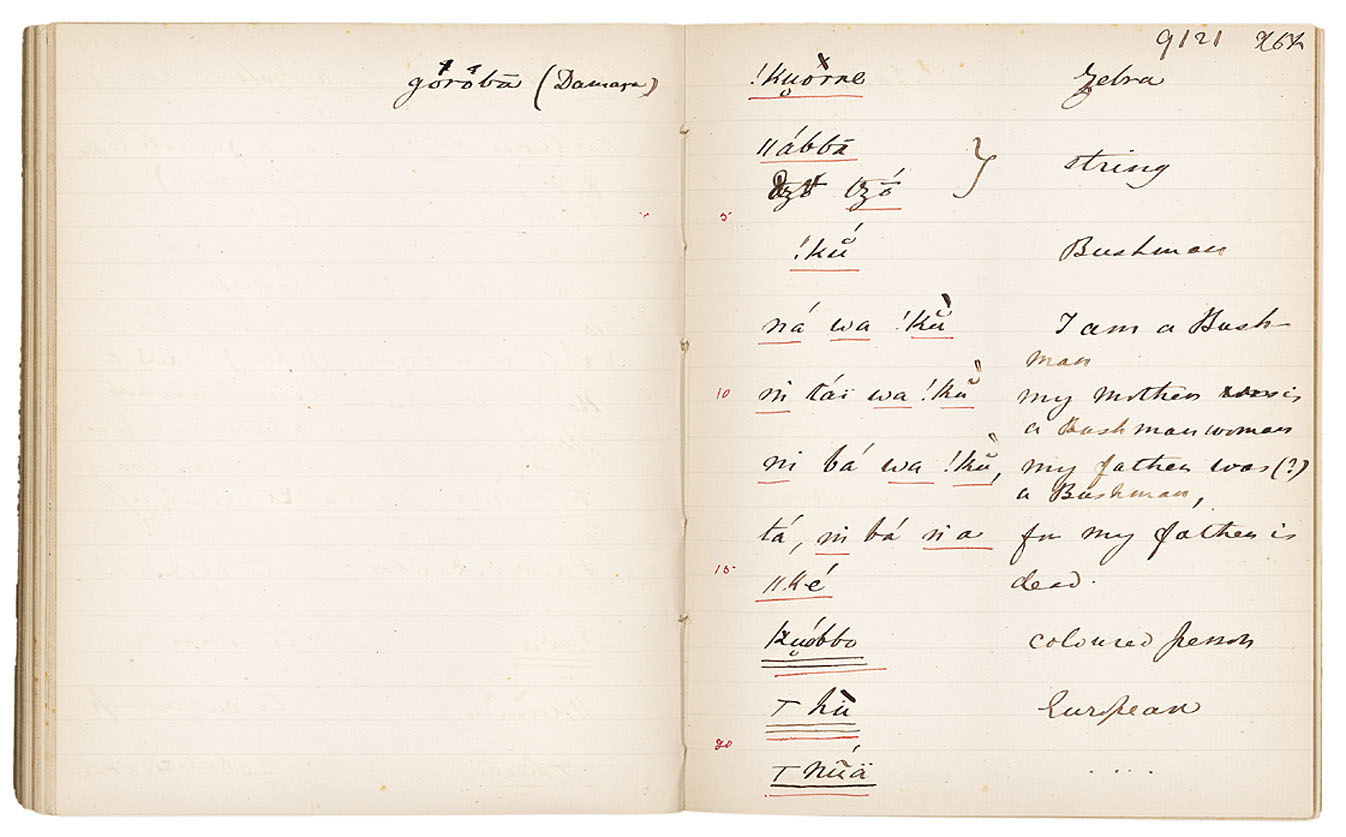 gőrőbā (Damara)
9121
!kṷo̽rne zebra
ǁábbā
tʒó
string
5
!kṹ Bushman
ná wa !kù̆ I am a Bush-
man
10 ṅ táï wa !kű̆ my mother is
a Bushman woman
ṅ bá wa !kű̆, my father was (?)
a Bushman,
tá, ṅ bá ṅ a for my father is
15 ǁké dead.
kṷóbbo coloured person
T hù̆ European
20 T nũ̄́ä ....